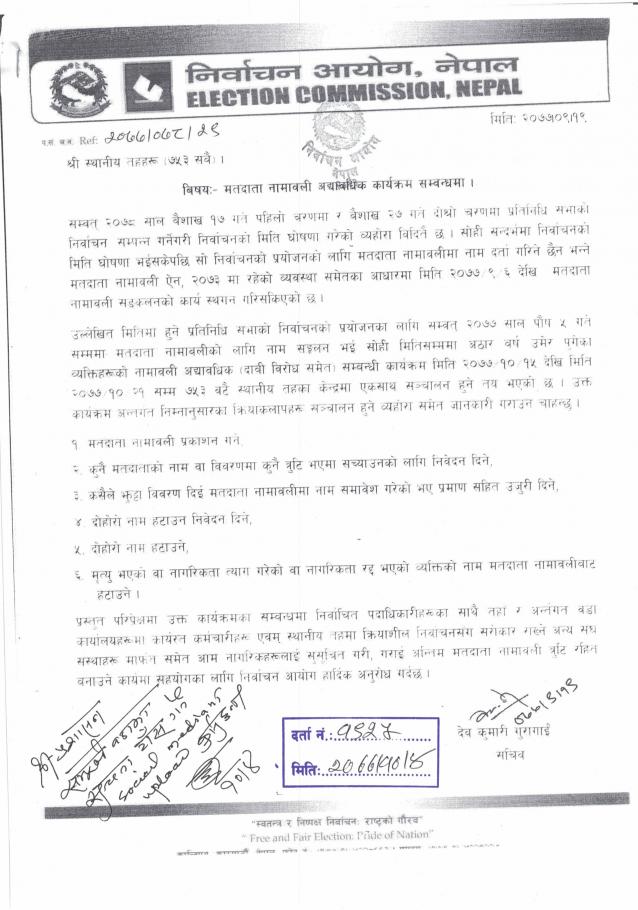 निर्वाचन आयोग, नेपाल
ELECTION COMMISSION, NEPAL
मिति: २०७७।०९।१९
प.सं. च.नं. Ref: २०७७/०७८/२९
निर्वाचन आयोग
नेपाल
श्री स्थानीय तहहरू (७५३ सबै) ।
विषय:- मतदाता नामावली अद्यावधिक कार्यक्रम सम्वन्धमा ।
सम्वत् २०७८ साल बैशाख १७ गते पहिलो चरणमा र बैशाख २७ गते दोश्रो चरणमा प्रतिनिधि सभाको
निर्वाचन सम्पन्न गर्नेगरी निर्वाचनको मिति घोषणा गरेको व्यहोरा विदितै छ । सोही सन्दर्भमा निर्वाचनको
मिति घोषणा भईसकेपछि सो निर्वाचनको प्रयोजनको लागि मतदाता नामावलीमा नाम दर्ता गरिने छैन भन्ने
मतदाता नामावली ऐन, २०७३ मा रहेको व्यवस्था समेतका आधारमा मिति २०७७/९/६ देखि मतदाता
नामावली सङ्कलनको कार्य स्थगन गरिसकिएको छ ।
उल्लेखित मितिमा हुने प्रतिनिधि सभाको निर्वाचनको प्रयोजनका लागि सम्वत् २०७७ साल पौष ५ गते
सम्ममा मतदाता नामावलीको लागि नाम सङ्कलन भई सोही मितिसम्ममा अठार वर्ष उमेर पुगेका
व्यक्तिहरूको नामावली अद्यावधिक (दावी विरोध समेत) सम्बन्धी कार्यक्रम मिति २०७७/१०/१५ देखि मिति
२०७७/१०/२१ सम्म ७५३ वटै स्थानीय तहका केन्द्रमा एकसाथ सञ्चालन हुने तय भएको छ । उक्त
कार्यक्रम अन्तर्गत निम्नानुसारका क्रियाकलापहरू सञ्चालन हुने व्यहोरा समेत जानकारी गराउन चाहन्छ ।
१. मतदाता नामावली प्रकाशन गर्ने,
२. कुनै मतदाताको नाम वा विवरणमा कुनै त्रुटि भएमा सच्याउनको लागि निवेदन दिने,
३. कसैले झुठ्ठा विवरण दिई मतदाता नामावलीमा नाम समावेश गरेको भए प्रमाण सहित उजुरी दिने,
४. दोहोरो नाम हटाउन निवेदन दिने,
५. दोहोरो नाम हटाउने,
६. मृत्यु भएको वा नागरिकता त्याग गरेको वा नागरिकता रद्द भएको व्यक्तिको नाम मतदाता नामावलीबाट
हटाउने ।
प्रस्तुत परिप्रेक्षमा उक्त कार्यक्रमका सम्बन्धमा निर्वाचित पदाधिकारीहरूका साथै तहाँ र अन्तर्गत वडा
कार्यालयहरूमा कार्यरत कर्मचारीहरू एवम् स्थानीय तहमा क्रियाशील निर्वाचनसंग सरोकार राख्ने अन्य संघ
संस्थाहरू मार्फत समेत आम नागरिकहरूलाई सुसूचित गरी, गराई अन्तिम मतदाता नामावली त्रुटि रहित
बनाउने कार्यमा सहयोगका लागि निर्वाचन आयोग हार्दिक अनुरोध गर्दछ ।
देव कुमारी गुरागाई
सचिव
social media मा
upload
दर्ता नं.:
मिति:
"स्वतन्त्र र निष्पक्ष निर्वाचन: राष्ट्रको गौरव"
" Free and Fair Election: Pride of Nation"